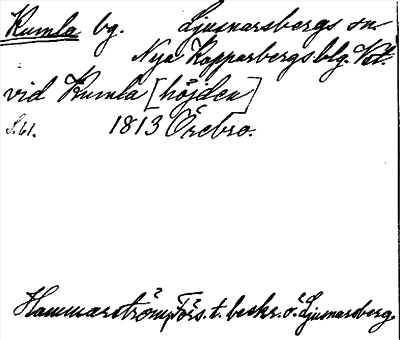 Kumla bg. Ljusnarsbergs sn.
Nya Kopparbergs blg. Vstl.
vid Kumla [höjden]
S. 61. 1813 Örebro.
Hammarström, Förs. t. beskr. ö. Ljusnarsberg.